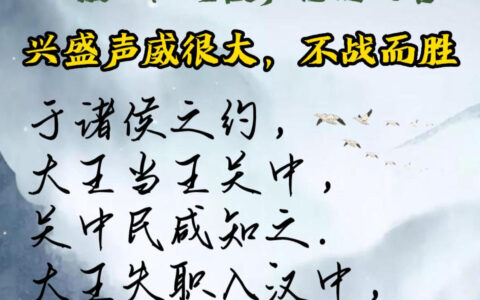 兴盛声威很大，不战而胜
于诸侯之约，
大王当王关中，
关中民咸知之.
大王失职入汉中，